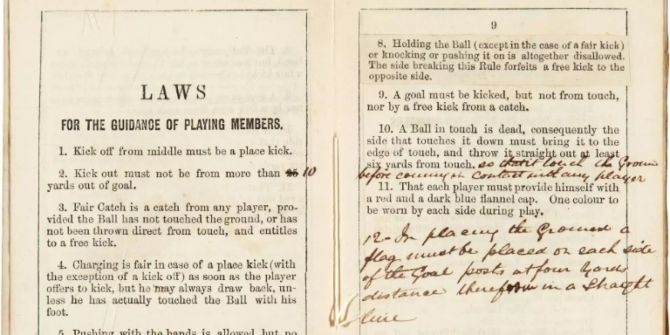 LAWS
FOR THE GUIDANCE OF PLAYING MEMBERS.
1. Kick off from middle must be a place kick.
2. Kick out must not be from more than 25 10
yards out of goal.
3. Fair Catch is a catch from any player, pro-
vided the Ball has not touched the ground, or has
not been thrown direct from touch, and entitles
to a free kick.
4. Charging is fair in case of a place kick (with
the exception of a kick off) as soon as the player
offers to kick, but he may always draw back, un-
less he has actually touched the Ball with his
foot.
5. Pushing with the hands is allowed but no
9
8. Holding the Ball (except in the case of a fair kick)
or knocking or pushing it on is altogether disallowed.
The side breaking this Rule forfeits a free kick to the
opposite side.
9. A goal must be kicked, but not from touch,
nor by a free kick from a catch.
10. A Ball in touch is dead, consequently the
side that touches it down must bring it to the
edge of touch, and throw it straight out at least
six yards from touch, so that it touch the Ground
before coming in contact with any player
11. That each player must provide himself with
a red and a dark blue flannel cap. One colour to
be worn by each side during play.
12- In placing the Ground a
flag must be placed on each side
of the Goal posts at four yards
distance therefrom in a Straight
line